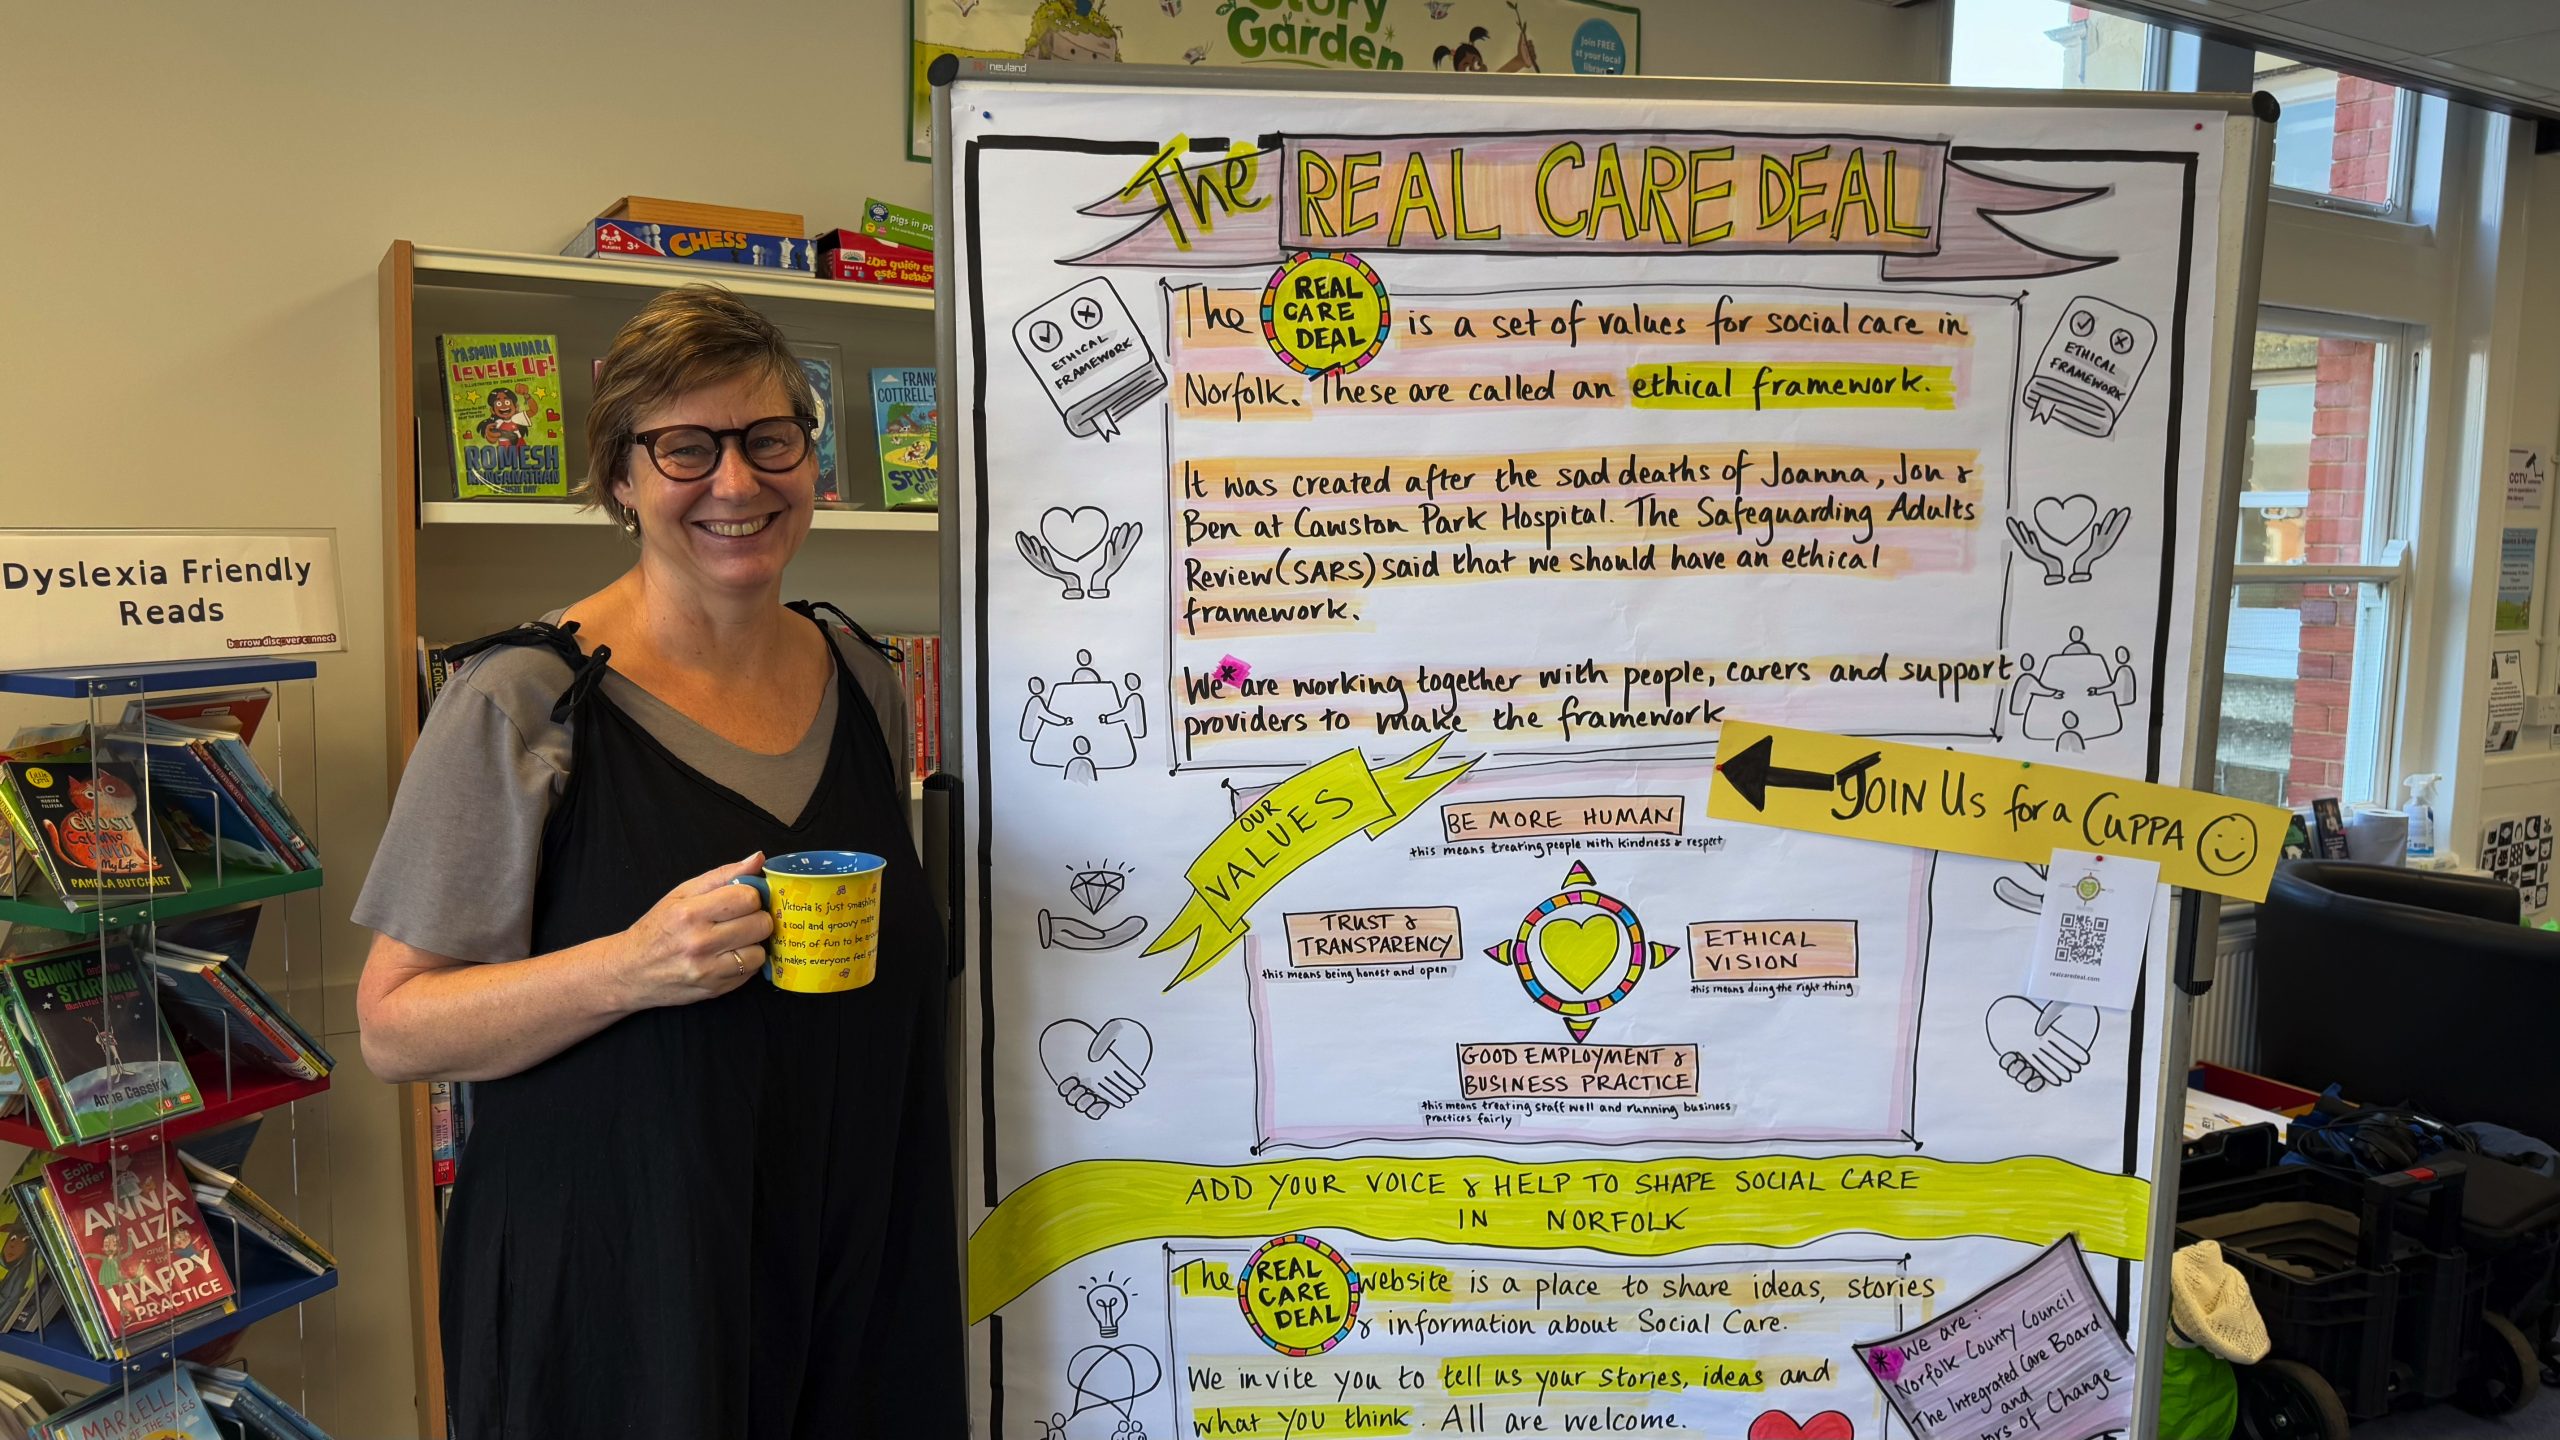 Story
Garden
Join FREE
at your local
library
neuland
The REAL CARE DEAL
The REAL CARE DEAL is a set of values for social care in
Norfolk. These are called an ethical framework.
It was created after the sad deaths of Joanna, Jon &
Ben at Cawston Park Hospital. The Safeguarding Adults
Review (SARS) said that we should have an ethical
framework.
We* are working together with people, carers and support
providers to make the framework
ETHICAL
FRAMEWORK
ETHICAL
FRAMEWORK
JOIN US for a CUPPA
realcaredeal.com
OUR
VALUES
BE MORE HUMAN
this means treating people with kindness & respect
TRUST &
TRANSPARENCY
this means being honest and open
ETHICAL
VISION
this means doing the right thing
GOOD EMPLOYMENT &
BUSINESS PRACTICE
this means treating staff well and running business
practices fairly
ADD YOUR VOICE & HELP TO SHAPE SOCIAL CARE
IN NORFOLK
The REAL CARE DEAL website is a place to share ideas, stories
& information about Social Care.
We invite you to tell us your stories, ideas and
what you think. All are welcome.
* We are:
Norfolk County Council
The Integrated Care Board
and
of Change
CHESS
3+
pigs in
¿De quién es
este bebé?
YASMIN BANDARA
Levels Up!
ROMESH
RANGANATHAN
FRANK
COTTRELL-
Dyslexia Friendly
Reads
borrow discover connect
Little Gems
THE GHOST
Cat who
SAVED
My Life
PAMELA BUTCHART
SAMMY and the
STARMAN
Anne Cassidy
Eoin
Colfer
ANNA
LIZA
and the
HAPPY
PRACTICE
OF THE
Victoria is just smashing,
a cool and groovy mate
She's tons of fun to be
and makes everyone feel
CCTV